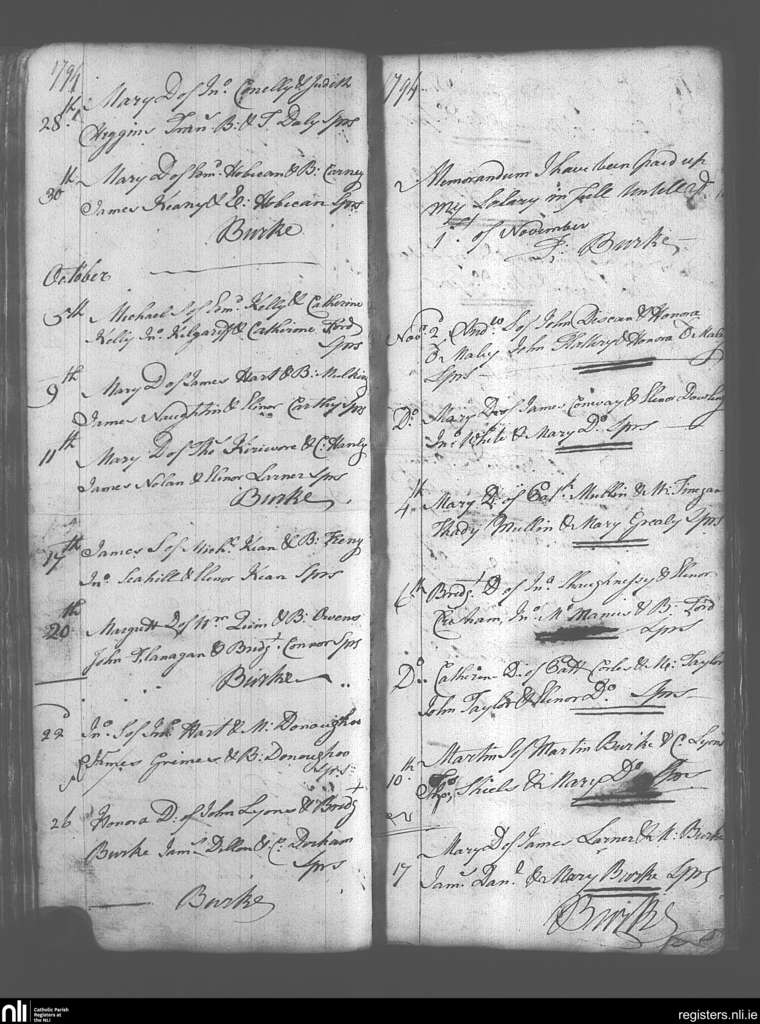 1794
28th Mary D of Jno. Conelly & Judith
Higgins B. & T Daly Sprs
30th Mary D of Hobican & B: Carney
James Keany & E: Hobican Sprs
Burke
October
5th Michael S of Kelly & Catherine
Kelly Jno. Kilgariff & Catherine Ford
Sprs
9th Mary D of James Hart & B:
James Naughtin & Elinor Carthy Sprs
11th Mary D of Thos. & C: Hanly
James Nolan & Elinor Larner Sprs
Burke
17th James S of Michl. Kean & B: Feeny
Jno. Scahill & Elenor Kean Sprs
20th Margrett D of Wm Quin & B: Owens
John Flanagan & Bridgt. Connor Sprs
Burke
22d Jno. S of Hart & M: Donaughoo
James Greimes & B: Donoughoo
Sprs:
26 Honora D: of John Lyons & Bridgt
Burke Jams. Dillon & C:
Sprs
Burke
1794
Memorandum I have been paid up
my Salary in full untill
1st. of November
Burke
2 S of John & Honora
O Maley John Flattery & Honora O Maley
Sprs
Do. Mary D of James Conway & Elenor Dowling
Jno. White & Mary Do. Sprs
4th Mary D: of Patt. Mullin & W: Finegan
Thady Mullin & Mary Grealy Sprs
6th Bridgt. D of Jno. Shaughnessy & Elenor
Jno. Mc Manus & B: Ford
Sprs
Do. Catherin D: of Patt & M: Taylor
John Taylor & Elenor Do. Sprs
10th Martin S of Martin Burke & C: Lyons
Thos. Shiels & Mary Do. Sprs
17 Mary D of James Larner & M: Burke
Jams. Danl. & Mary Burke Sprs
Burke
nli
Catholic Parish
Registers at
the NLI
registers.nli.ie